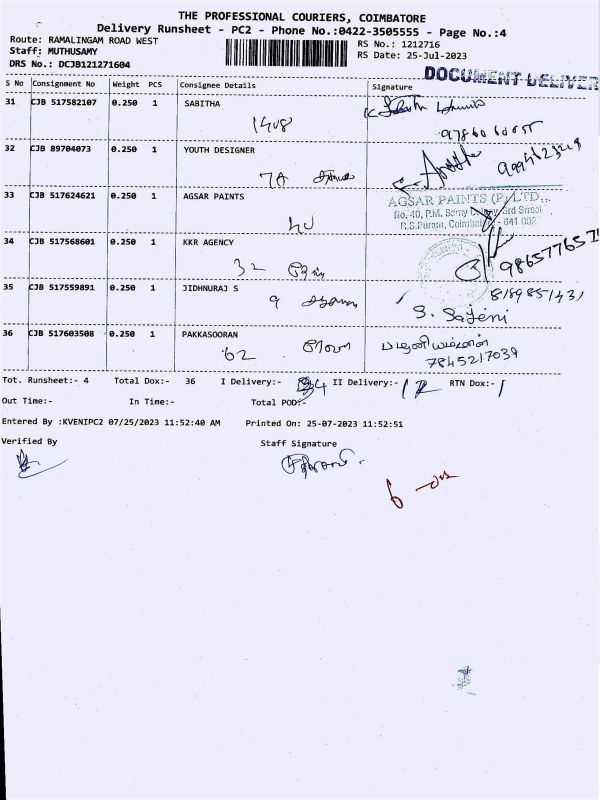 THE PROFESSIONAL COURIERS, COIMBATORE
Delivery Runsheet - PC2 - Phone No.:0422-3505555 - Page No.:4
Route: RAMALINGAM ROAD WEST RS No.: 1212716
Staff: MUTHUSAMY RS Date: 25-Jul-2023
DRS No.: DCJB121271604
DOCUMENT DELIVER
S No Consignment No Weight PCS Consignee Details Signature
31 CJB 517582107 0.250 1 SABITHA
32 CJB 89704073 0.250 1 YOUTH DESIGNER
7A
33 CJB 517624621 0.250 1 AGSAR PAINTS
AGSAR PAINTS (P) LTD.,
No. 40, P.M. Samy Colony 3rd Street
R.S.Puram, Coimbatore - 641 002
34 CJB 517568601 0.250 1 KKR AGENCY
32
35 CJB 517559891 0.250 1 JIDHNURAJ S
9
8189851431
S. Sajeni
36 CJB 517603508 0.250 1 PAKKASOORAN
62
7845217039
Tot. Runsheet:- 4 Total Dox:- 36 I Delivery:- 34 II Delivery:- 1 RTN Dox:- 1
Out Time:- In Time:- Total POD:-
Entered By :KVENIPC2 07/25/2023 11:52:40 AM Printed On: 25-07-2023 11:52:51
Verified By Staff Signature
6